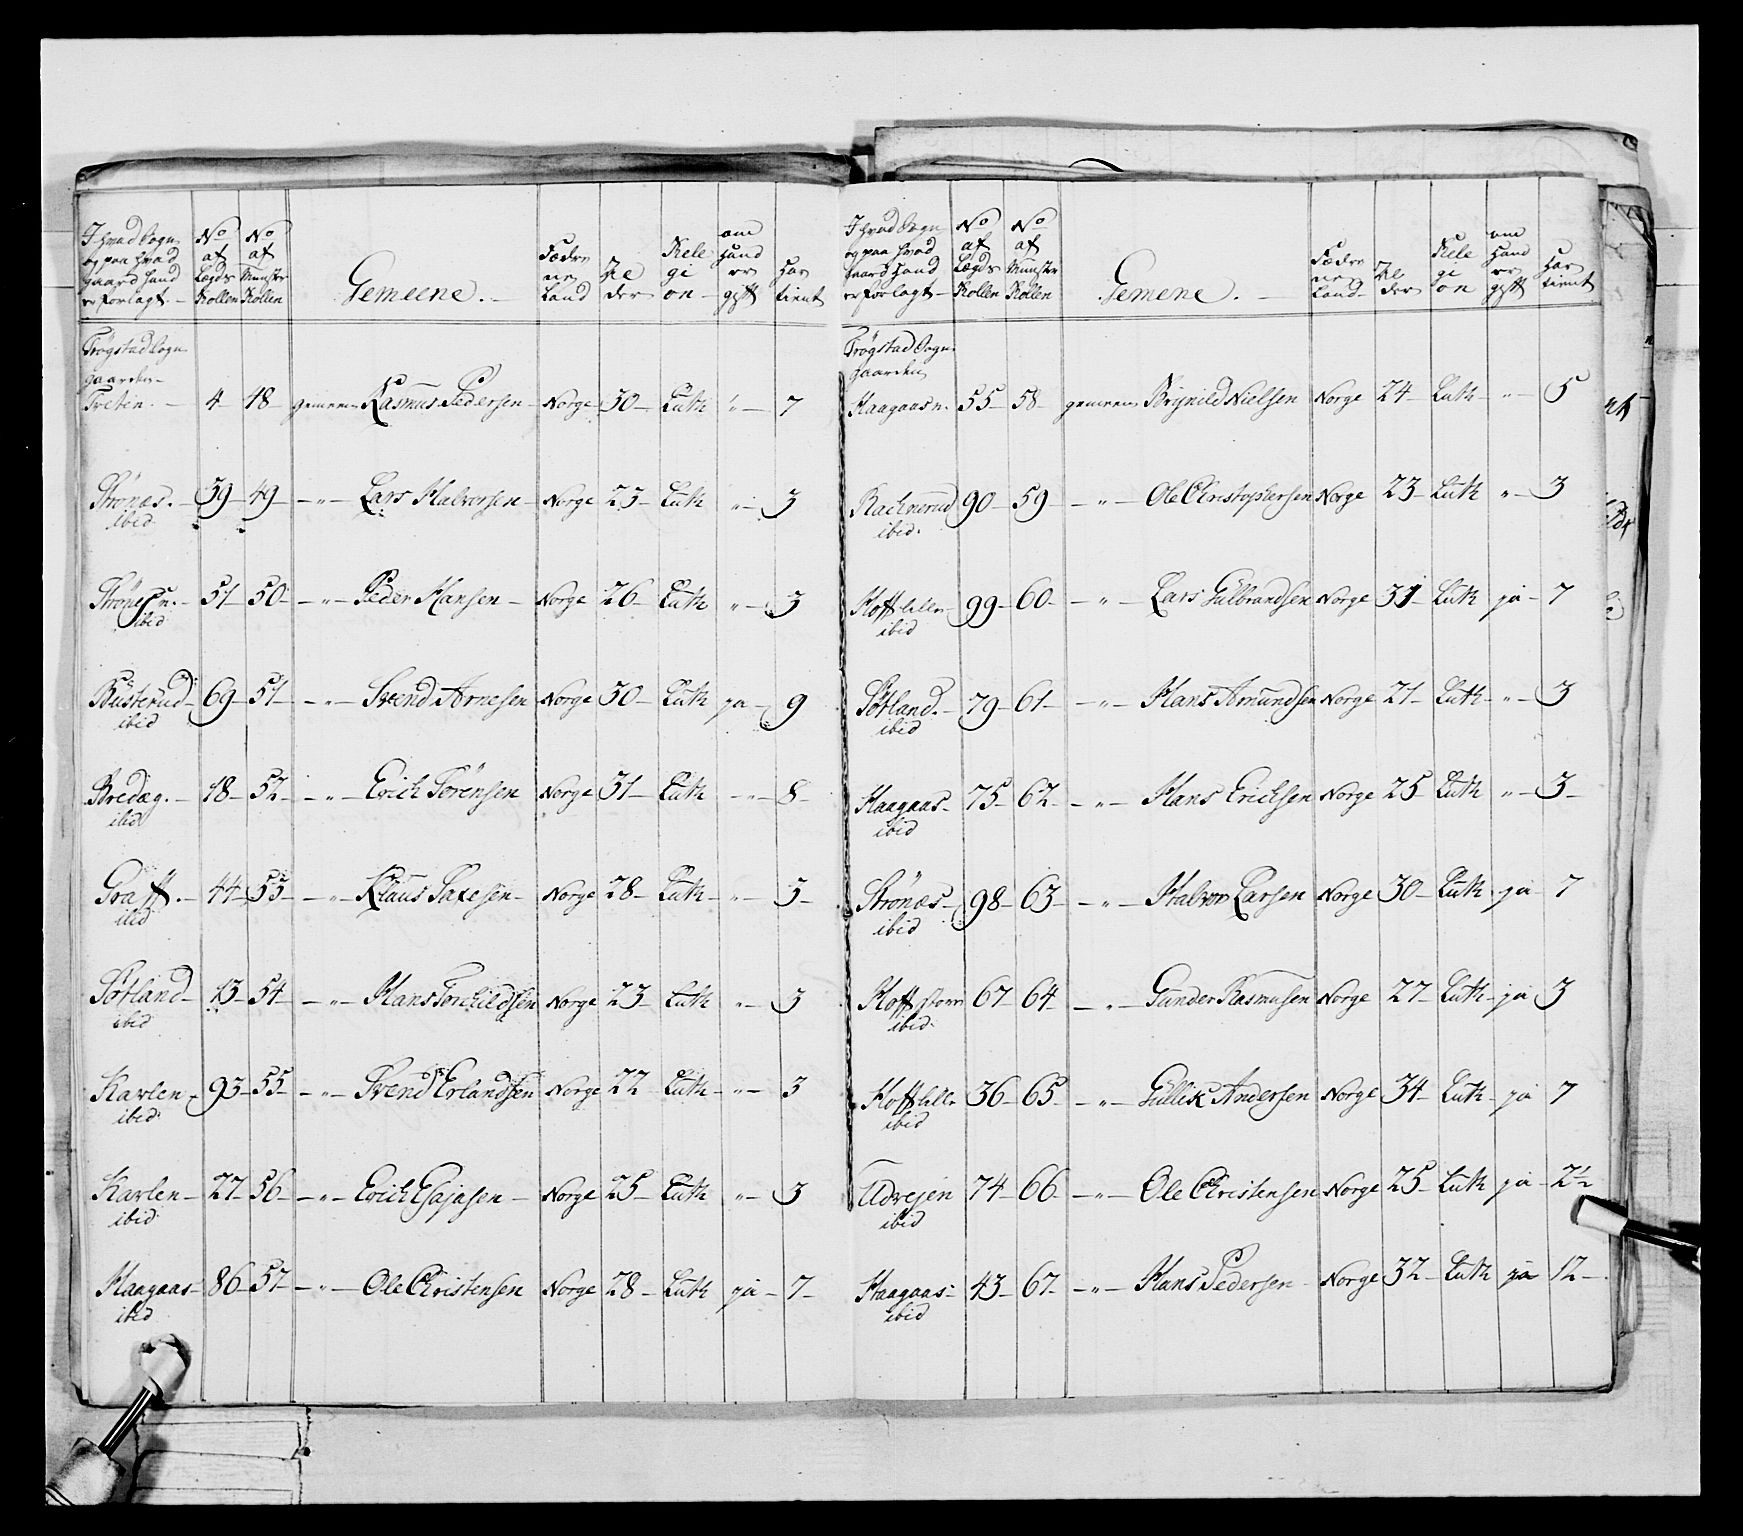 I hvad Sogn og paa hvad gaard hand er forlagt. No af Lægds Rollen No af Munster Rollen Gemeene. Fædrene Land Alder Religion om hand er gift har tient
Trögstad Sogn
gaarden
Tretin. 4 48 gemeen Rasmus Pedersen Norge 30 Luth " 7
Strönes. 59 49 " Lars Halvorsen Norge 23 Luth " 3
ibid
51 50 " Peder Hansen Norge 26 Luth " 3
ibid
Busterud 69 51 " Svend Arnesen Norge 30 Luth ja 9
ibid
Bredæg. 18 52 " Erich Sörensen Norge 31 Luth " 8
ibid
Graff. 44 53 " Klaus Saxesen Norge 28 Luth " 3
ibid
Sötland 13 54 " Hans Torkildsen Norge 23 Luth " 3
ibid
Karlen 93 55 " Svend Erlandsen Norge 22 Luth " 3
ibid
Karlen 27 56 " Erich Norge 25 Luth " 3
ibid
Haagaas 86 57 " Ole Christensen Norge 28 Luth ja 7
ibid
I hvad Sogn og paa hvad gaard hand er forlagt No af Lægds Rollen No af Munster Rollen Gemene. Fædrene Land Alder Religion om hand er gift har tient
Trögstad Sogn
gaarden
Haagaas 55 58 gemeen Brynild Nielsen Norge 24 Luth " 5
Rachnerud 90 59 " Ole Christophersen Norge 23 Luth " 3
ibid.
Hoff lille 99 60 " Lars Gulbrandsen Norge 31 Luth ja 7
ibid
Sötland. 79 61 " Hans Amundsen Norge 21 Luth " 3
ibid
Haagaas 75 62 " Hans Ericksen Norge 25 Luth " 3
ibid
Strönæs 98 63 " Halvor Larsen Norge 30 Luth ja 7
ibid
Hoff store 67 64 " Gunder Rasmusen Norge 27 Luth ja 3
ibid.
Hoff lille 36 65 " Gullik Andersen Norge 34 Luth ja 7
ibid
Udvejen 74 66 " Ole Christensen Norge 25 Luth ja 2½
ibid
Haagaas 43 67 " Hans Pedersen Norge 32 Luth ja 12
ibid